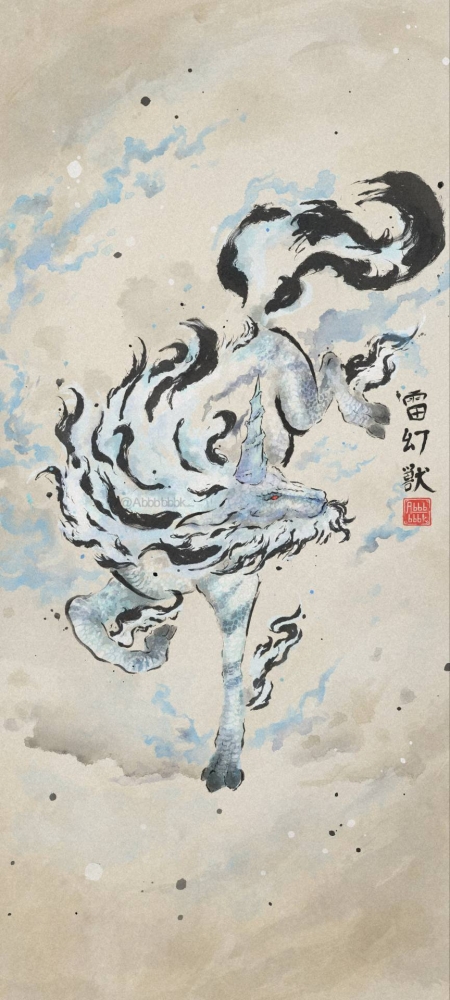 雷幻獸
Abbb
bbbk
@Abbbbbbk_